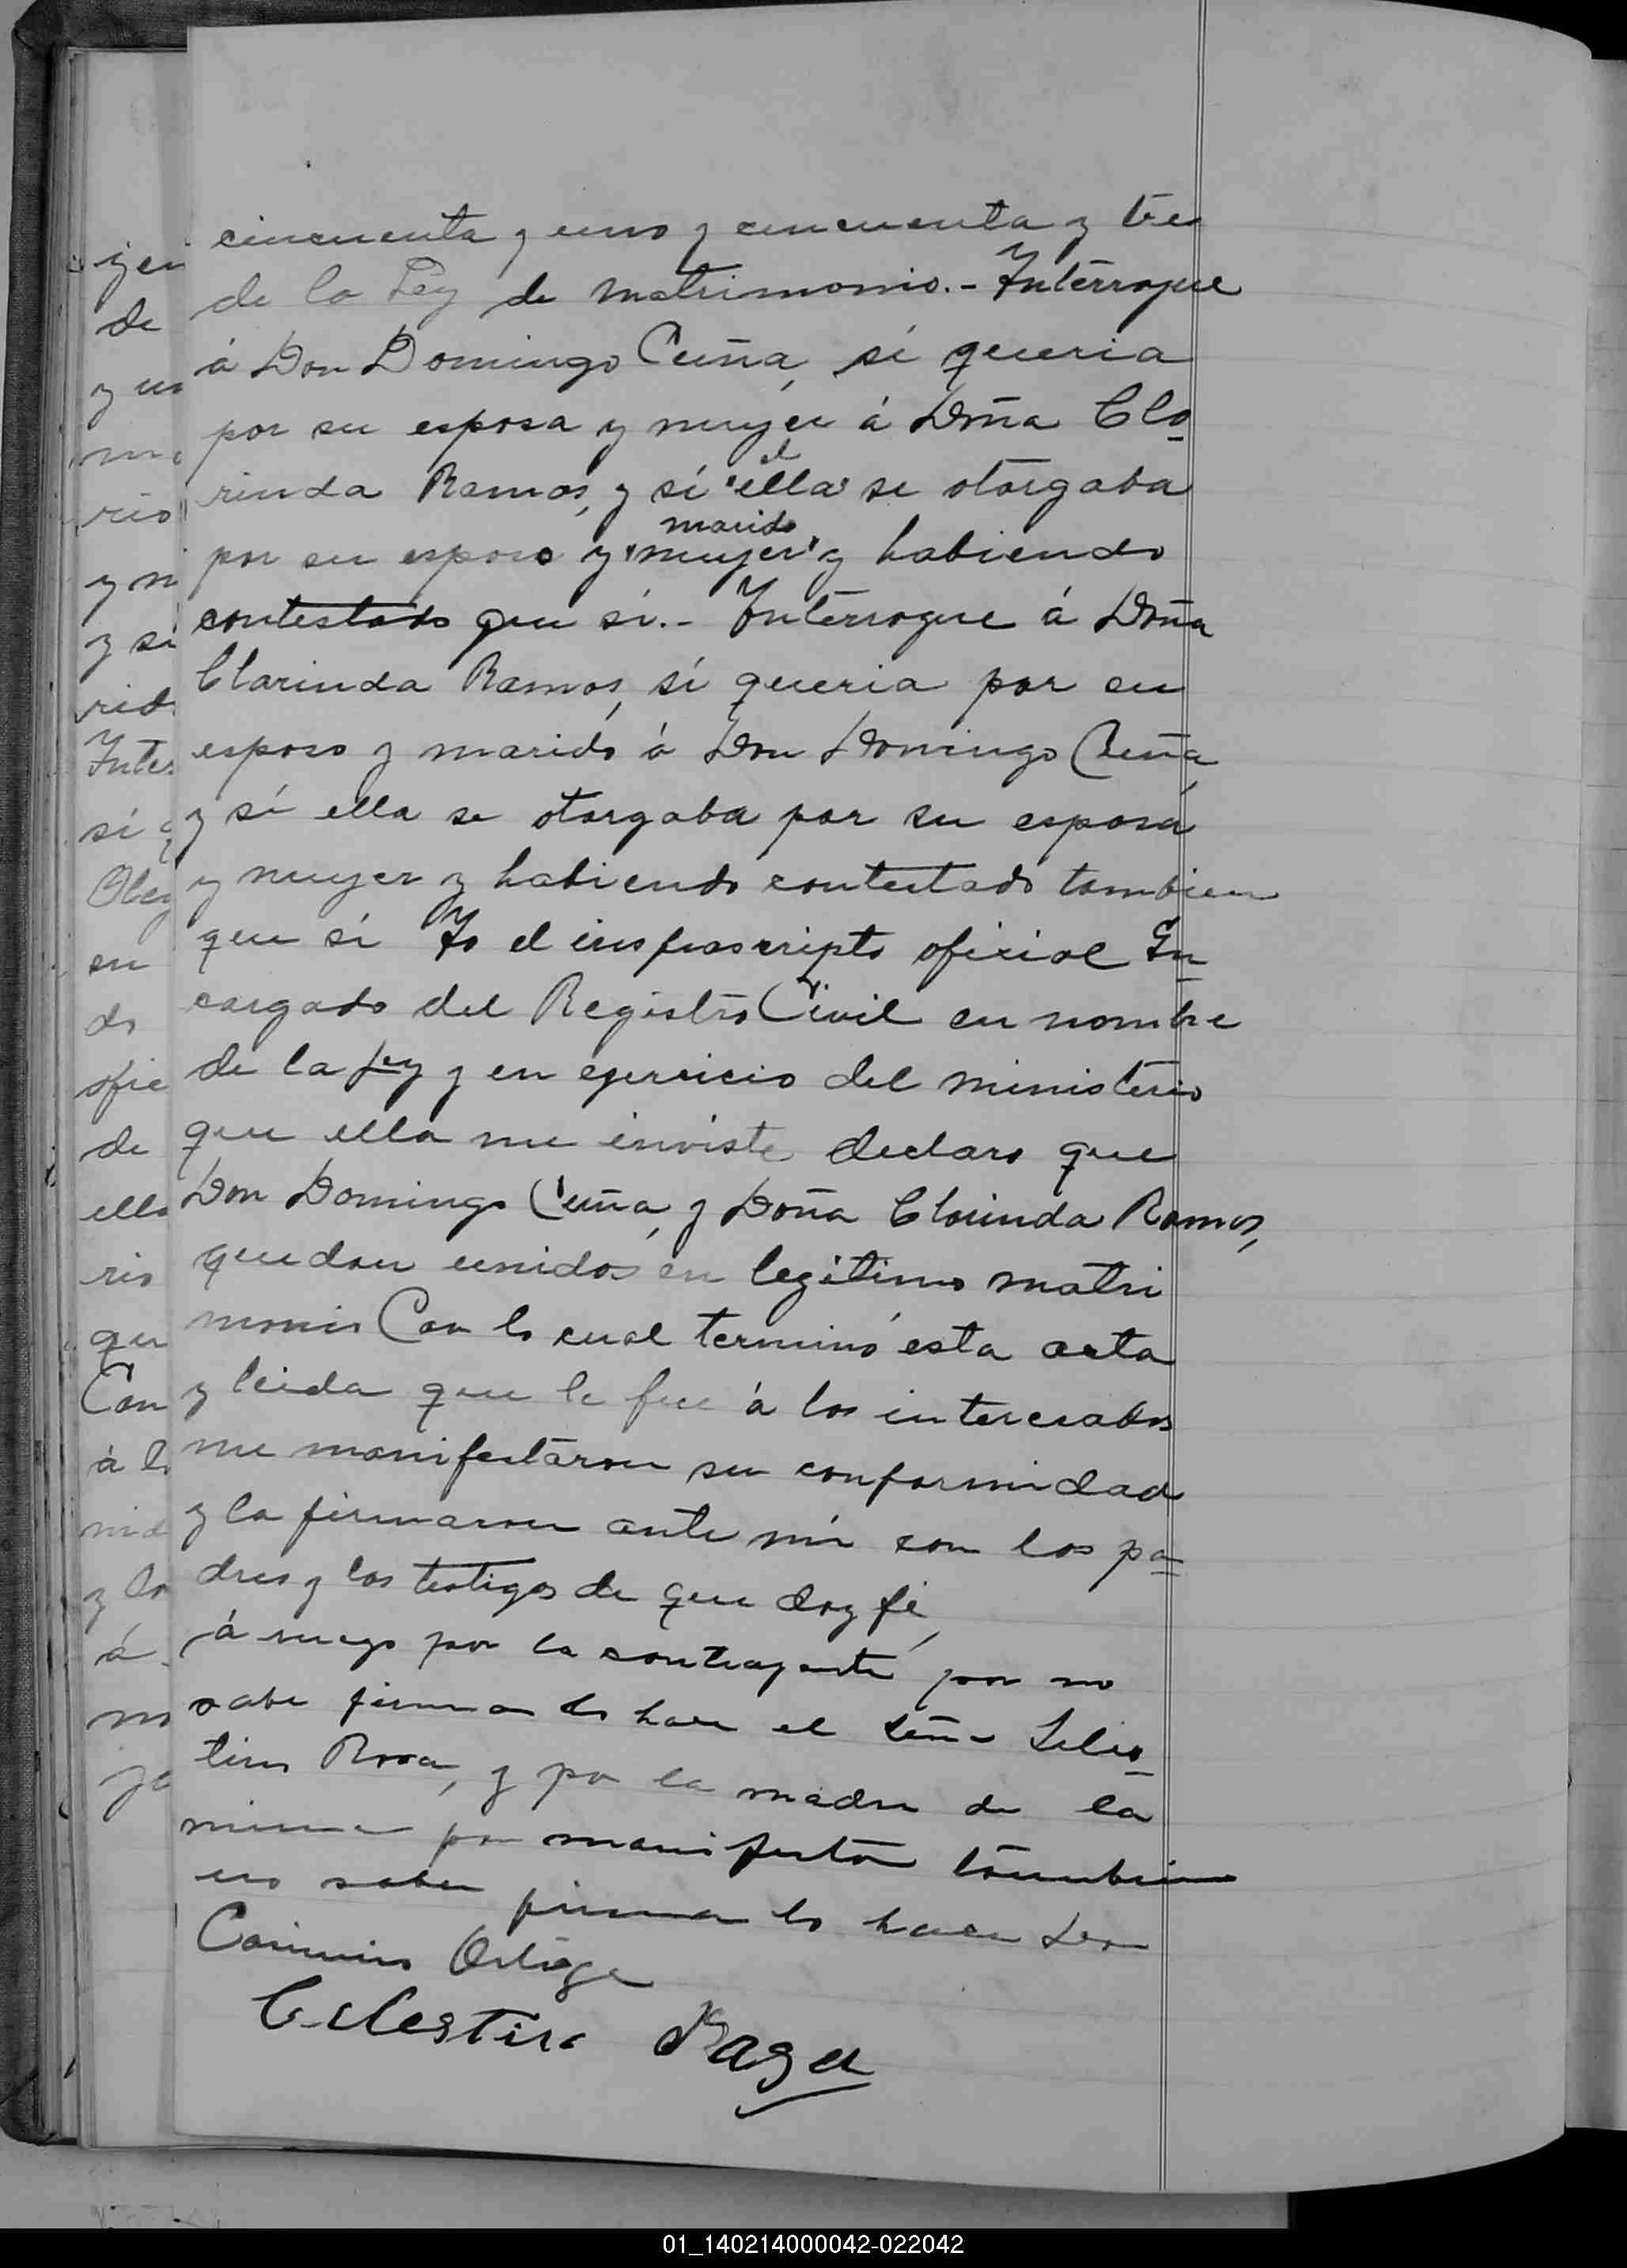 cincuenta y uno y cincuenta y tres
de la Ley de matrimonio.- Interrogue
á Don Domingo Ceña, si queria
por su esposa y mujer á Doña Clo
rinda Ramos, y sí "ella" se otorgaba
el
por su esposo y "mujer" y habiendo
marido
contestado que si.- Interrogue á Doña
Clarinda Ramos, si queria por su
esposo y marido á Don Domingo Ceña,
y sí ella se otorgaba por su esposa
y mujer y habiendo contestado tambien
que sí Yo el infrascripto oficial En
cargado del Registro Civil en nombre
de la Ley y en ejercicio del ministerio
que ella me inviste declaro que
Don Domingo Ceña, y Doña Clorinda Ramos,
quedan unidos en legitimo matri
monio Con lo cual terminó esta acta
y leida que le fue á los interesados
me manifestaron su conformidad
y la firmaron ante mí con los pa
dres y los testigos de que doy fé,
á ruego por la contrayente por no
sabe firmar lo hace el
y por la madre de la
misma por manifestar tambien
no saber firmar lo hace Don
Casimiro Ortega
Celestino
yen
de
y un
rio
y si
Inter
si
su
do
ofic
de
ella
rio
que
Con
á
01_140214000042-022042